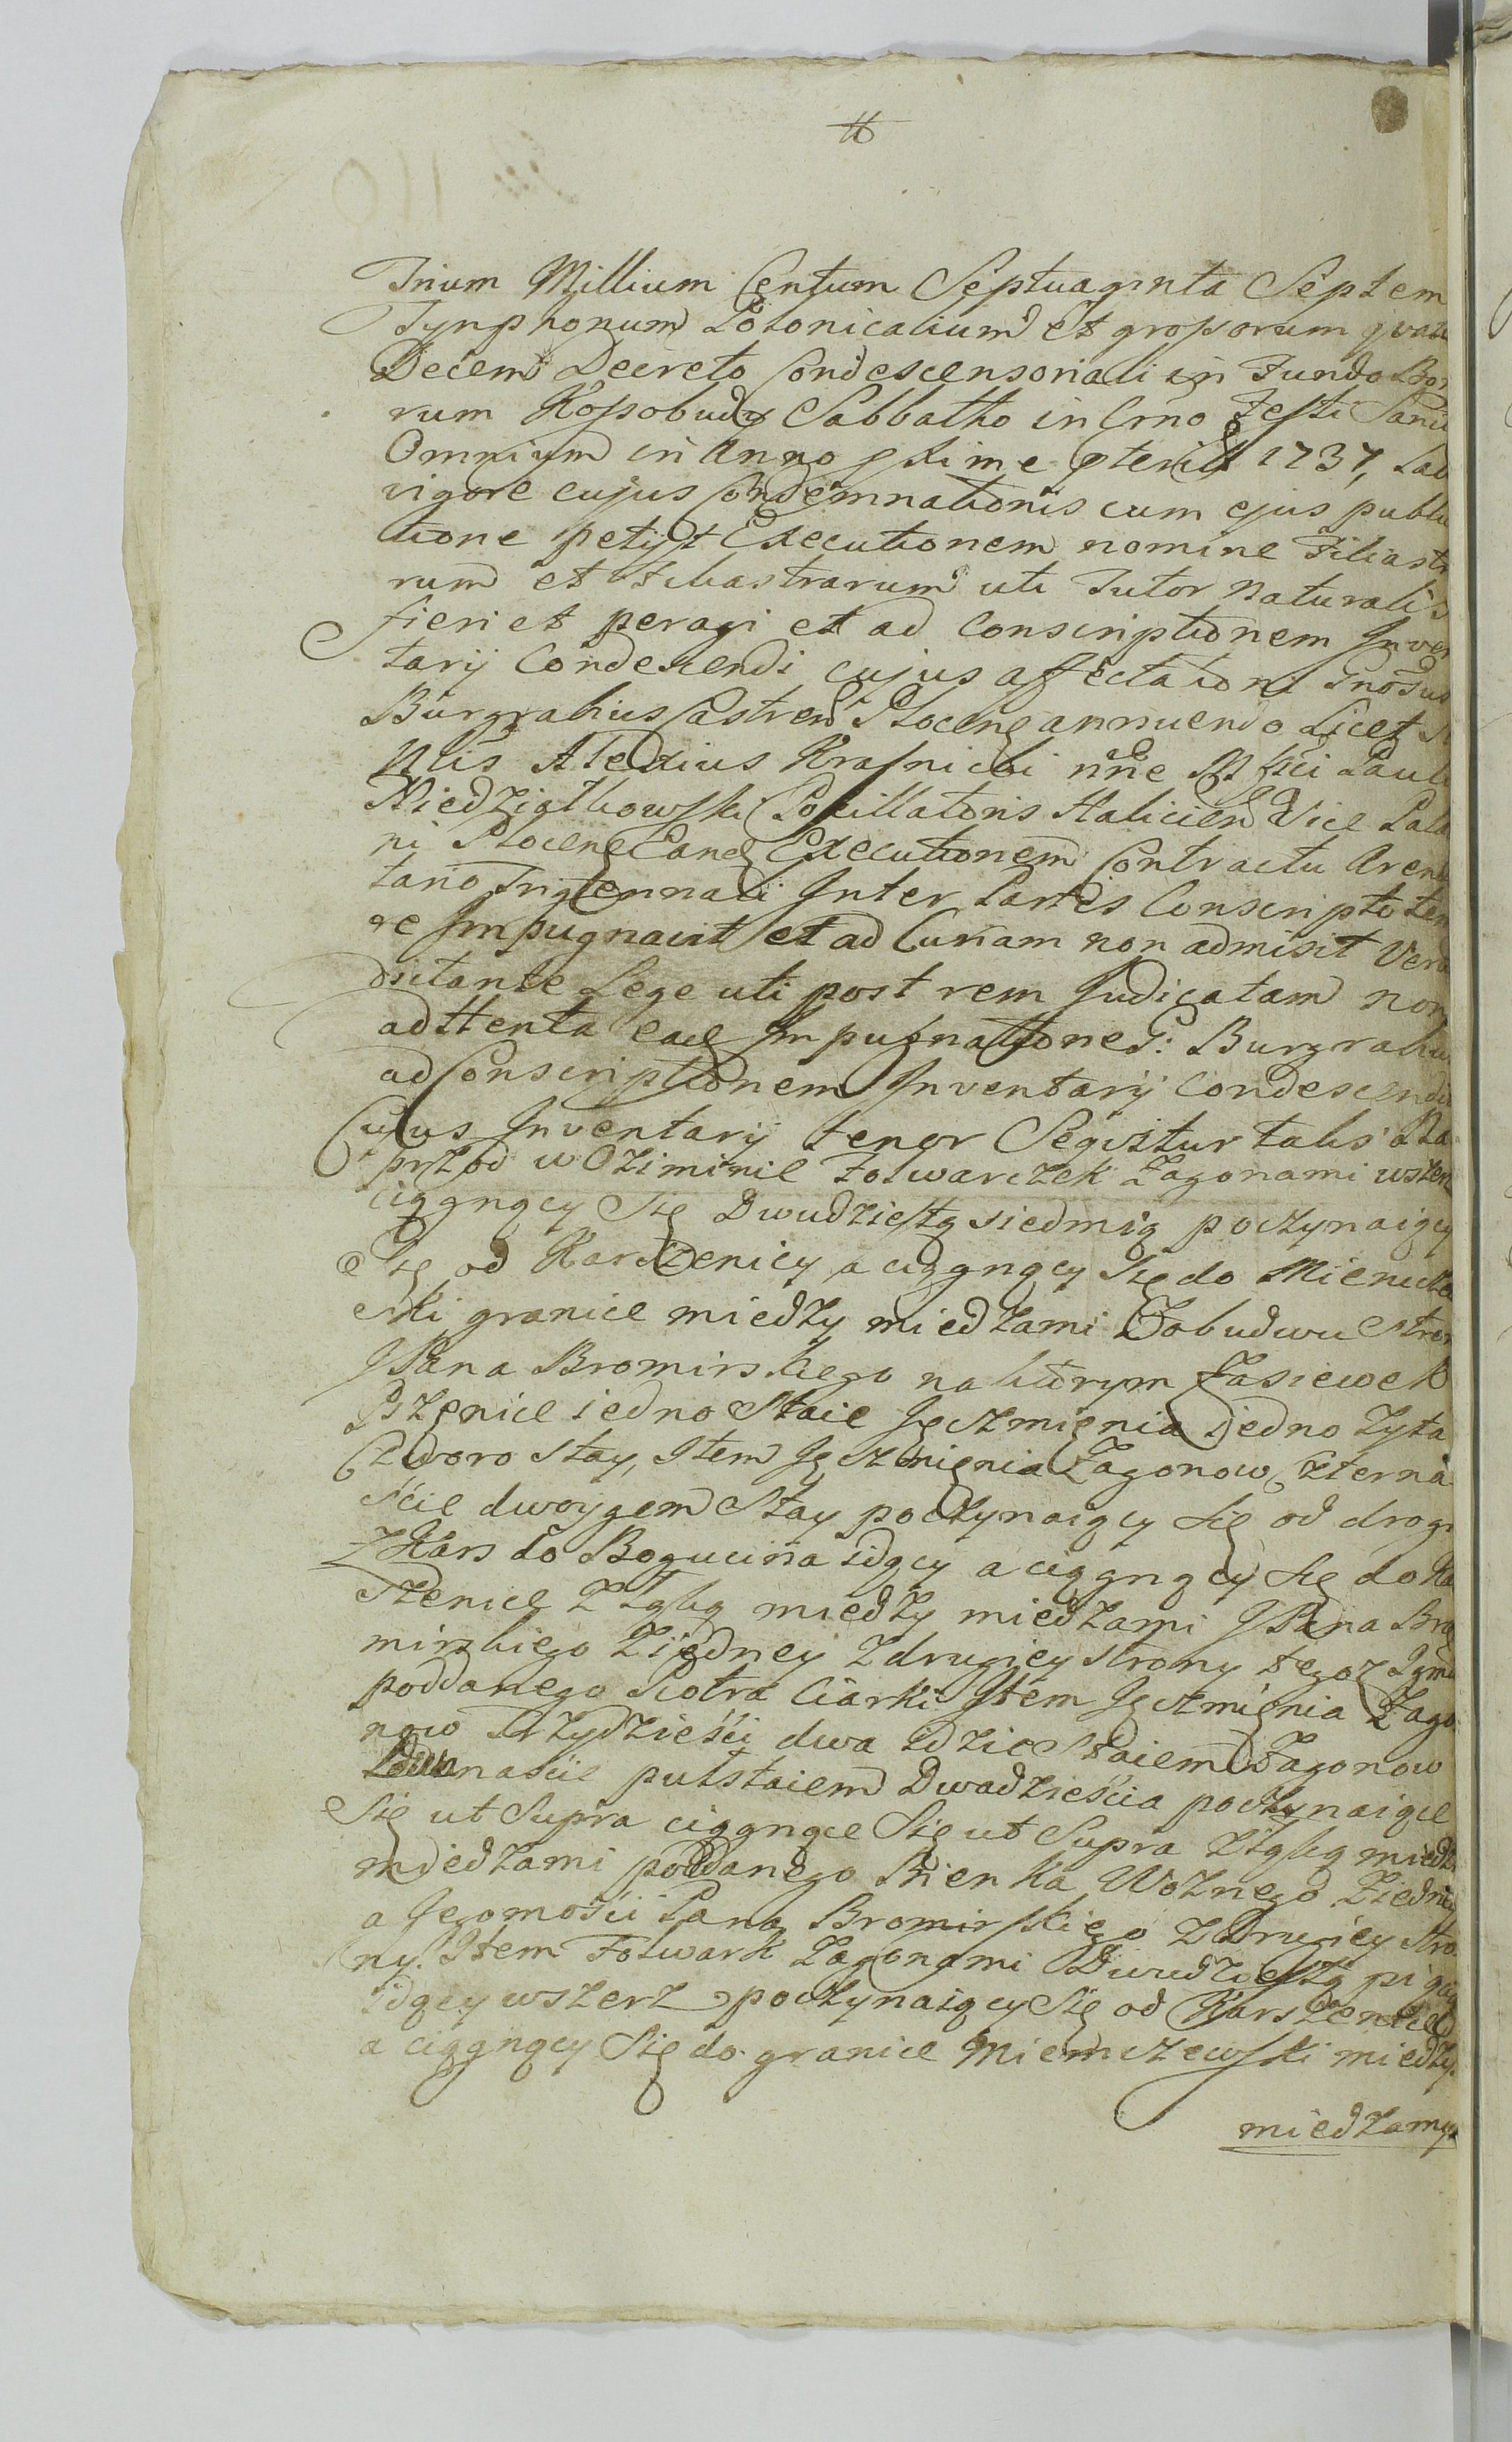 Trium Millium Centum Septuaginta Septem
Tynphonum Polonicalium et grossorum
Decem Decreto Condescensoriali in Fundo Bo
rum Kossobudy Sabbatho in Crno Festi Sanc
Omnium in Anno pterit 1737, Lat
vigore cujus Condemnationis cum ejus publi
tione petijt Executionem nomine Filiast
rum et Filiastrarum uti Tutor Naturalis
fieri et peragi et ad Conscriptionem Inven
tarij Condescendi cujus affectationi Gnosus
Burgrabius Castren Plocen annuendo Licet
Nlis Alexius Krasnicki nne Mfici Pauli
Niedziałkowski Pocillatoris Halicien Vice Pala
ni Plocen Eand Executionem Contractu Aren
tario Triennali Inter Partes Conscripto ten
re Impugnavit et ad Curiam non admisit Veru
dictante Lege uti post rem Judicatam non
adttenta ead Impugnatione G: Burgrabiu
ad Conscriptionem Inventarij Condescendi
Cujus Inventarij tenor Seqvitur talis Na
przod w Oziminie Folwarczek Zagonami wszer
ciągnący Się Dwudziestą siedmią poczynaiący
Się od Karszenicy a ciągnący Się do Miemcze
ski granice między miedzami Zobudwu Stron
JPana Bromirskiego na ktorym Zasiewek
Pszenice iedno Staie Jęczmienia iedno Zyta
Czworo Stay, Item Jęczmięnia Zagonow Czterna
ście dwoygem Stay poczynaiący Się od drogi
z Kars do Bogucina idący a ciągnący Się do Ka
szenice z Łąką między miedzami JPana Bro
mirskiego Ziedney z drugiey Strony tegoz Jgm
poddanego Piotra Ciarki Item Jęczmięnia Zago
now Trzydzieści dwa idzie Staiem Zagonow
Dwanascie pułstaiem Dwadzieścia poczynaiące
Się ut Supra ciągnące Się ut Supra z Łąką miedz
miedzami poddanego Bienka Woznego Ziedney
a Jegomości Pana Bromirskiego z Drugiey Stro
ny. Item Folwark Zagonami Dwudziestą pią
idący wszerz poczynaiący Się od Karszenice
a ciągnący Się do granice Miemczewski między
miedzamy